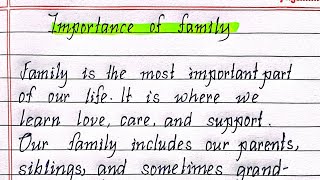 Importance of family
Family is the most important part
of our life. It is where we
learn love, care, and support.
Our family includes our parents,
siblings, and sometimes grand-